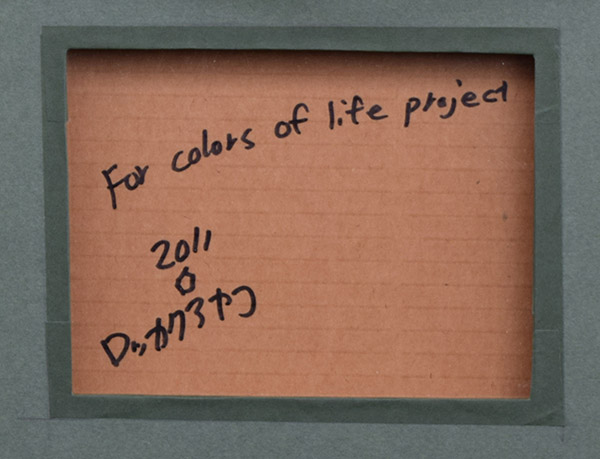 For colors of life project
2011
ロッカクアヤコ